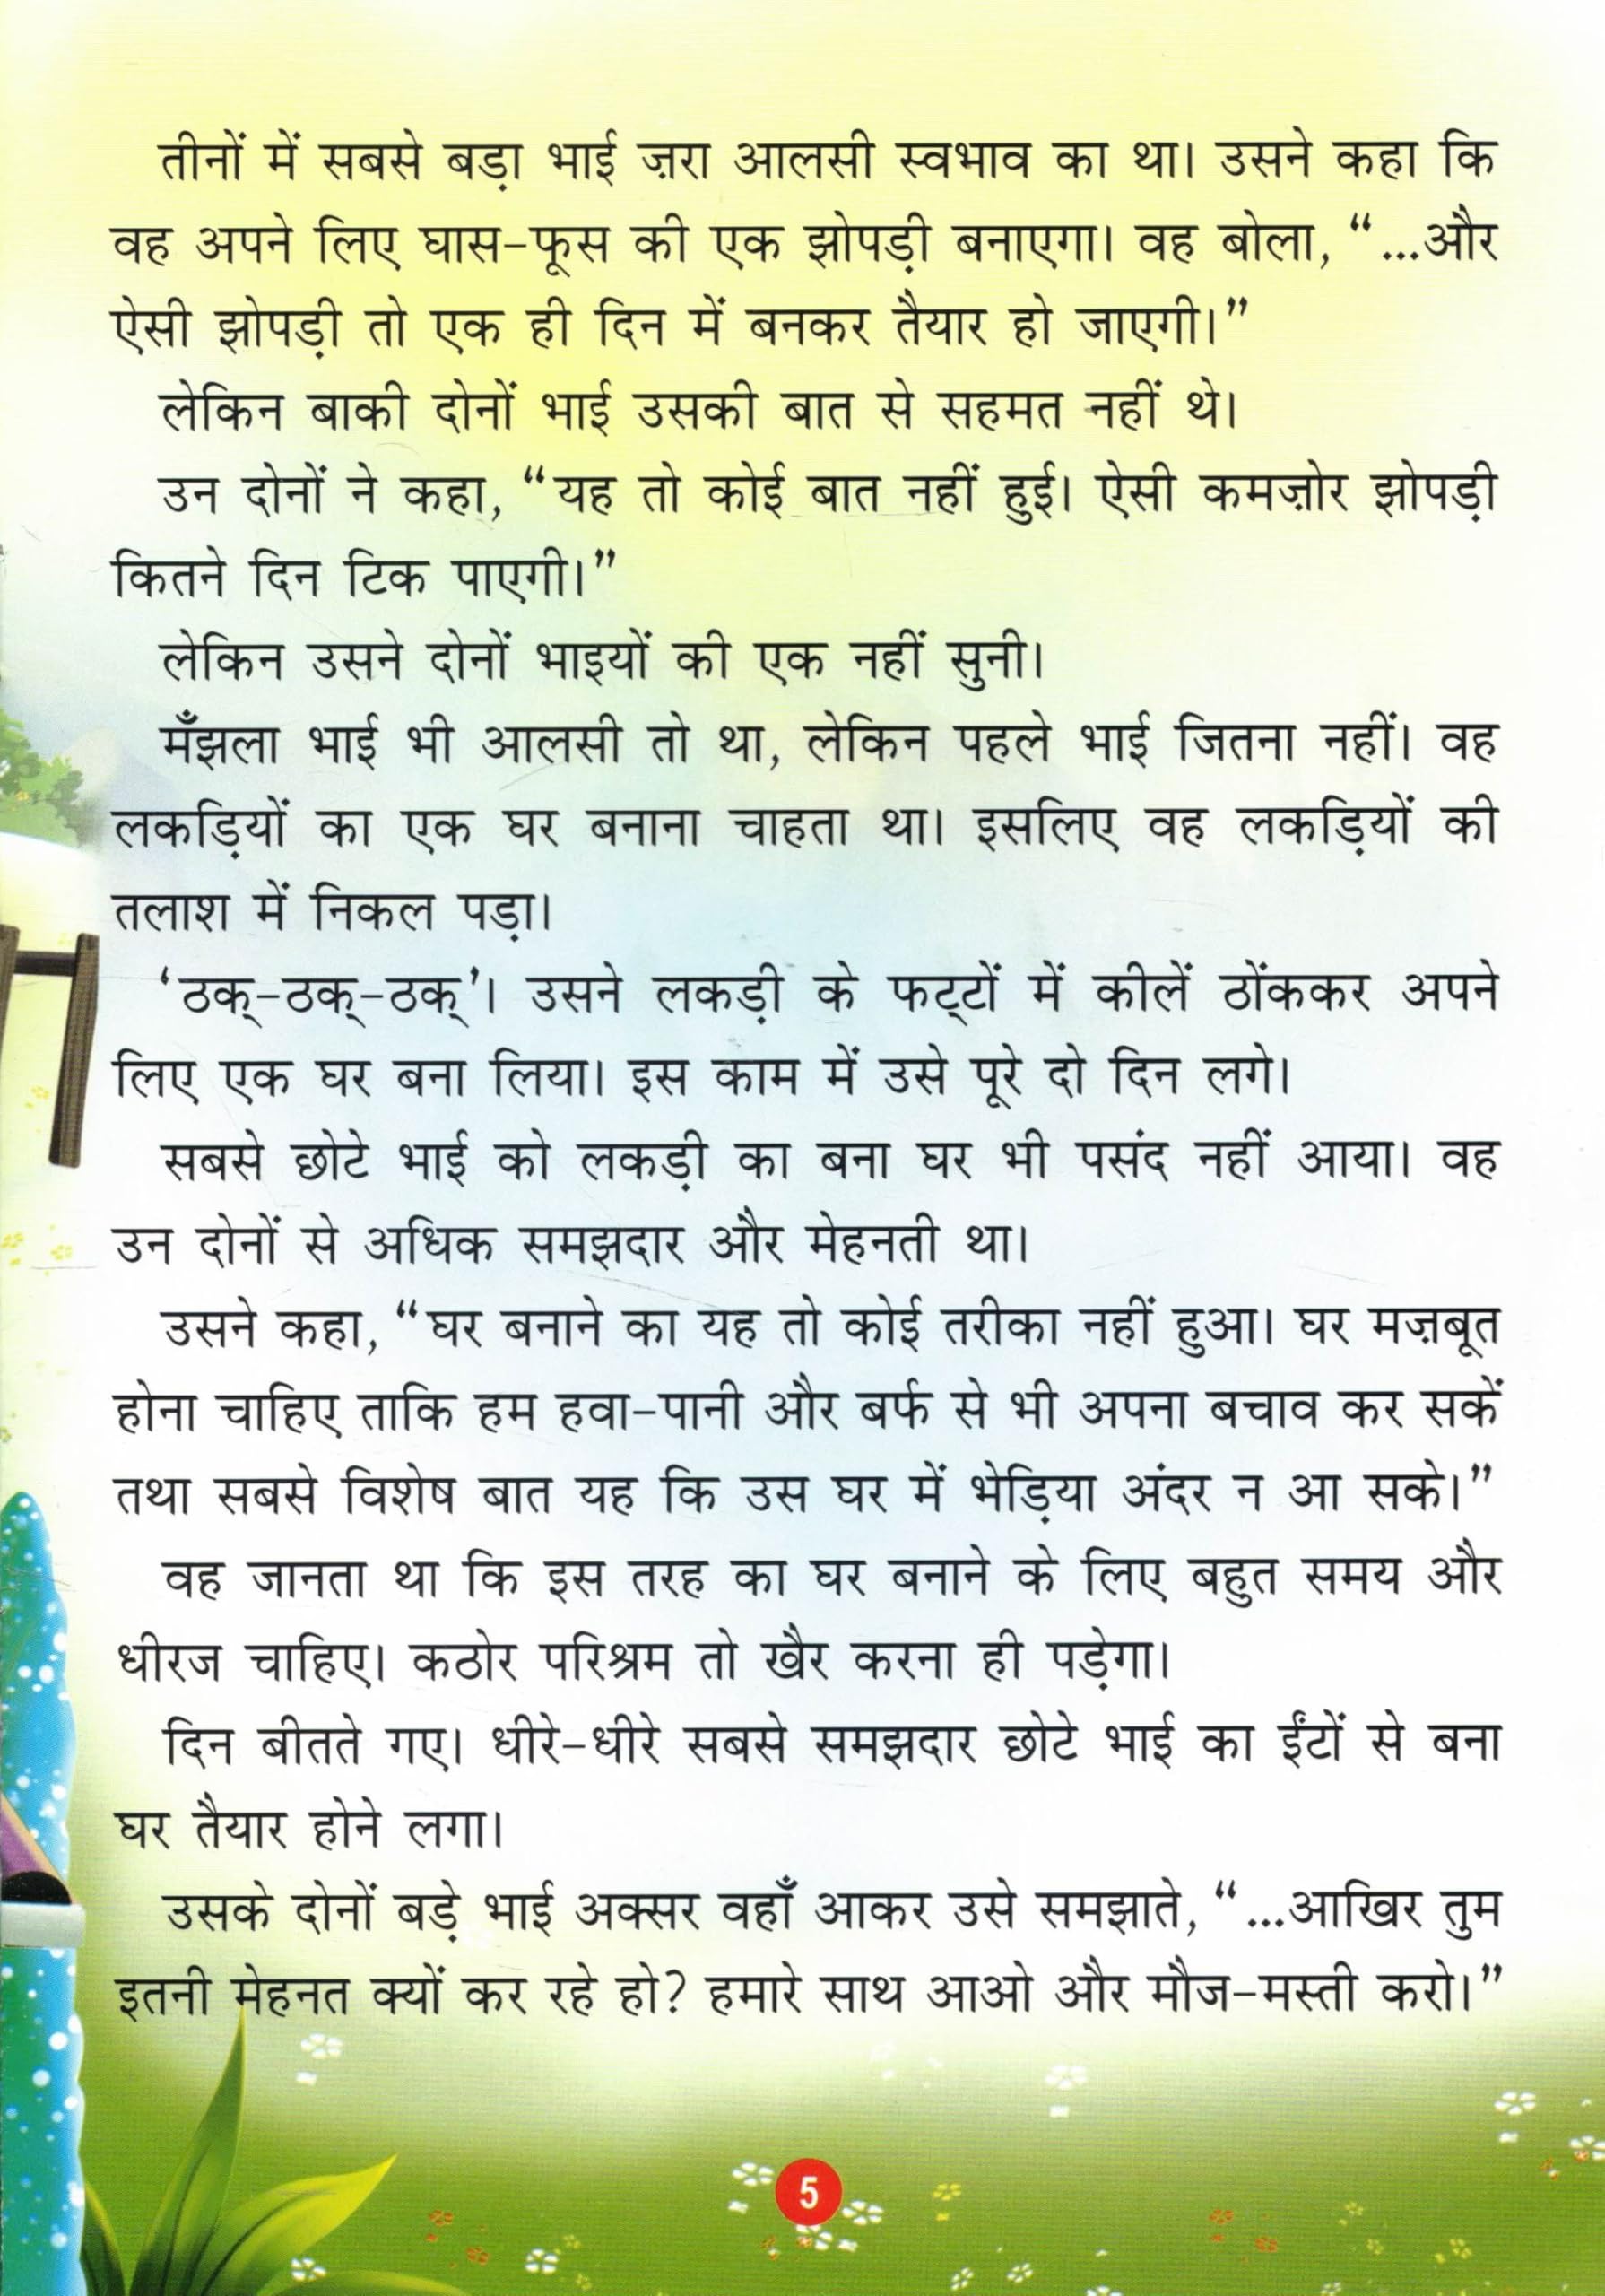 तीनों में सबसे बड़ा भाई ज़रा आलसी स्वभाव का था। उसने कहा कि
वह अपने लिए घास-फूस की एक झोपड़ी बनाएगा। वह बोला, “...और
ऐसी झोपड़ी तो एक ही दिन में बनकर तैयार हो जाएगी।”
लेकिन बाकी दोनों भाई उसकी बात से सहमत नहीं थे।
उन दोनों ने कहा, “यह तो कोई बात नहीं हुई। ऐसी कमज़ोर झोपड़ी
कितने दिन टिक पाएगी।”
लेकिन उसने दोनों भाइयों की एक नहीं सुनी।
मँझला भाई भी आलसी तो था, लेकिन पहले भाई जितना नहीं। वह
लकड़ियों का एक घर बनाना चाहता था। इसलिए वह लकड़ियों की
तलाश में निकल पड़ा।
‘ठक्-ठक्-ठक्’। उसने लकड़ी के फट्टों में कीलें ठोंककर अपने
लिए एक घर बना लिया। इस काम में उसे पूरे दो दिन लगे।
सबसे छोटे भाई को लकड़ी का बना घर भी पसंद नहीं आया। वह
उन दोनों से अधिक समझदार और मेहनती था।
उसने कहा, “घर बनाने का यह तो कोई तरीका नहीं हुआ। घर मज़बूत
होना चाहिए ताकि हम हवा-पानी और बर्फ से भी अपना बचाव कर सकें
तथा सबसे विशेष बात यह कि उस घर में भेड़िया अंदर न आ सके।”
वह जानता था कि इस तरह का घर बनाने के लिए बहुत समय और
धीरज चाहिए। कठोर परिश्रम तो खैर करना ही पड़ेगा।
दिन बीतते गए। धीरे-धीरे सबसे समझदार छोटे भाई का ईंटों से बना
घर तैयार होने लगा।
उसके दोनों बड़े भाई अक्सर वहाँ आकर उसे समझाते, “...आखिर तुम
इतनी मेहनत क्यों कर रहे हो? हमारे साथ आओ और मौज-मस्ती करो।”
5